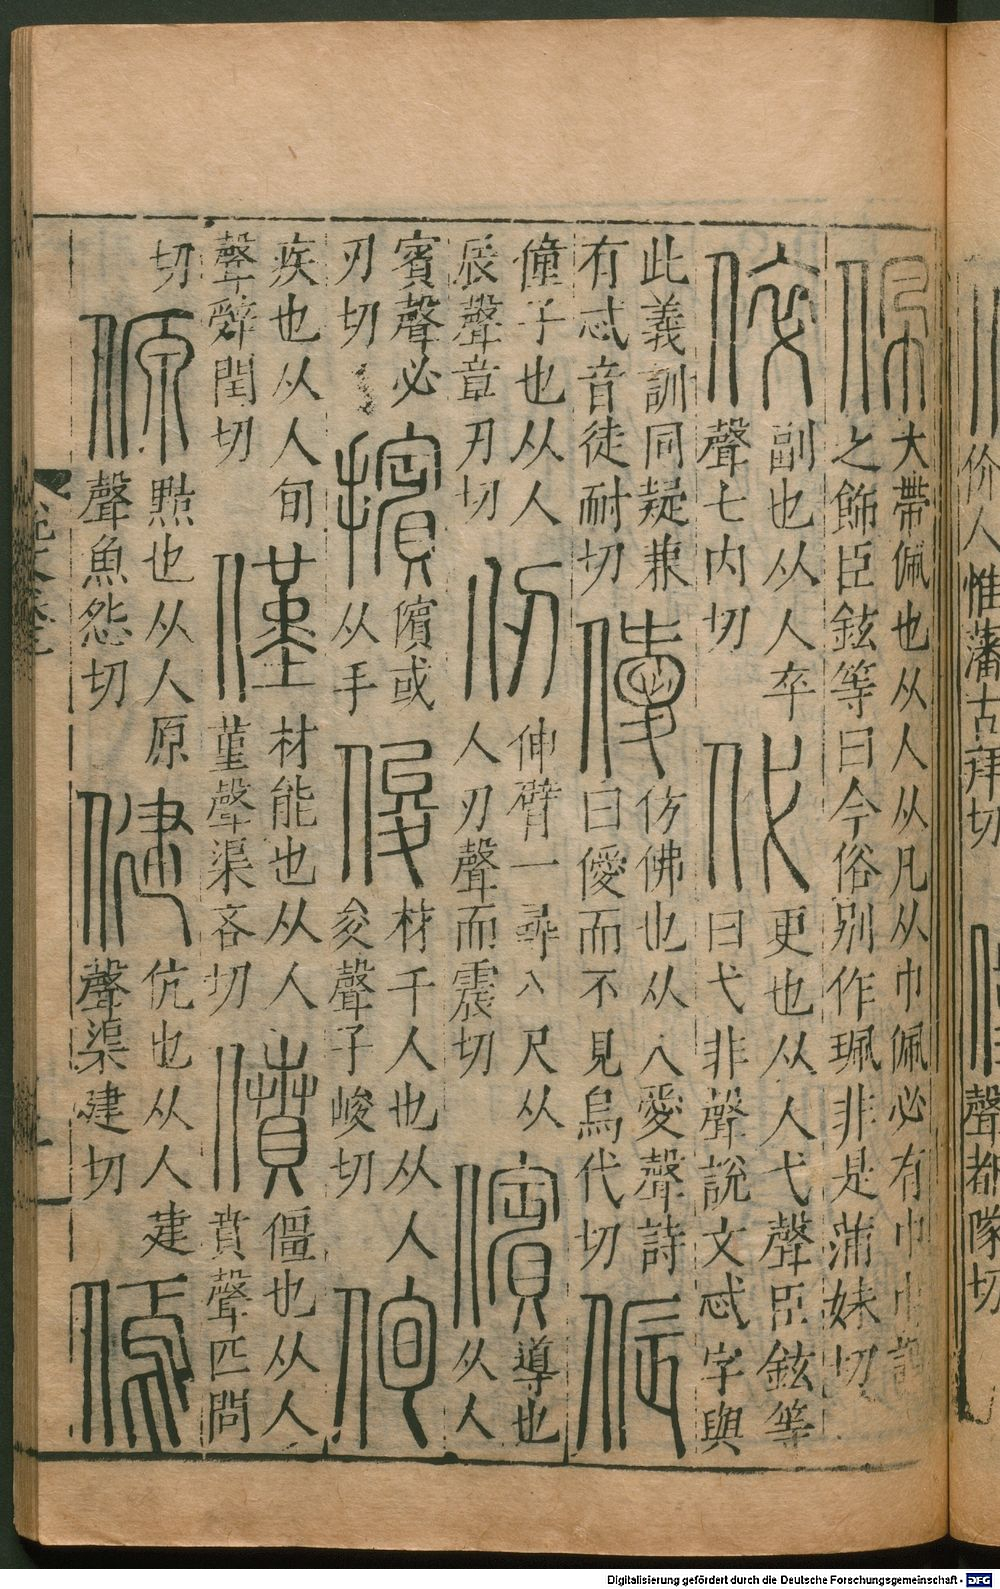 价人惟藩古拜切
聲都隊切
佩
大帶佩也从人从凡从巾佩必有巾巾謂
之飾臣鉉等曰今俗別作珮非是蒲妹切
倅
副也从人卒
聲七内切
代
更也从人弋聲臣鉉等
曰弋非聲說文忒字與
此義訓同疑兼
有忒音徒耐切
僾
仿佛也从人愛聲詩
曰僾而不見烏代切
侲
僮子也从人
辰聲章刃切
仞
伸臂一尋八尺从
人刃聲而震切
儐
導也
从人
賓聲必
刃切
擯
儐或
从手
俊
材千人也从人
夋聲子峻切
侚
疾也从人旬
聲辤閏切
僅
材能也从人
堇聲渠吝切
僨
僵也从人
賁聲匹問
切
傆
黠也从人原
聲魚怨切
健
伉也从人建
聲渠建切
傿